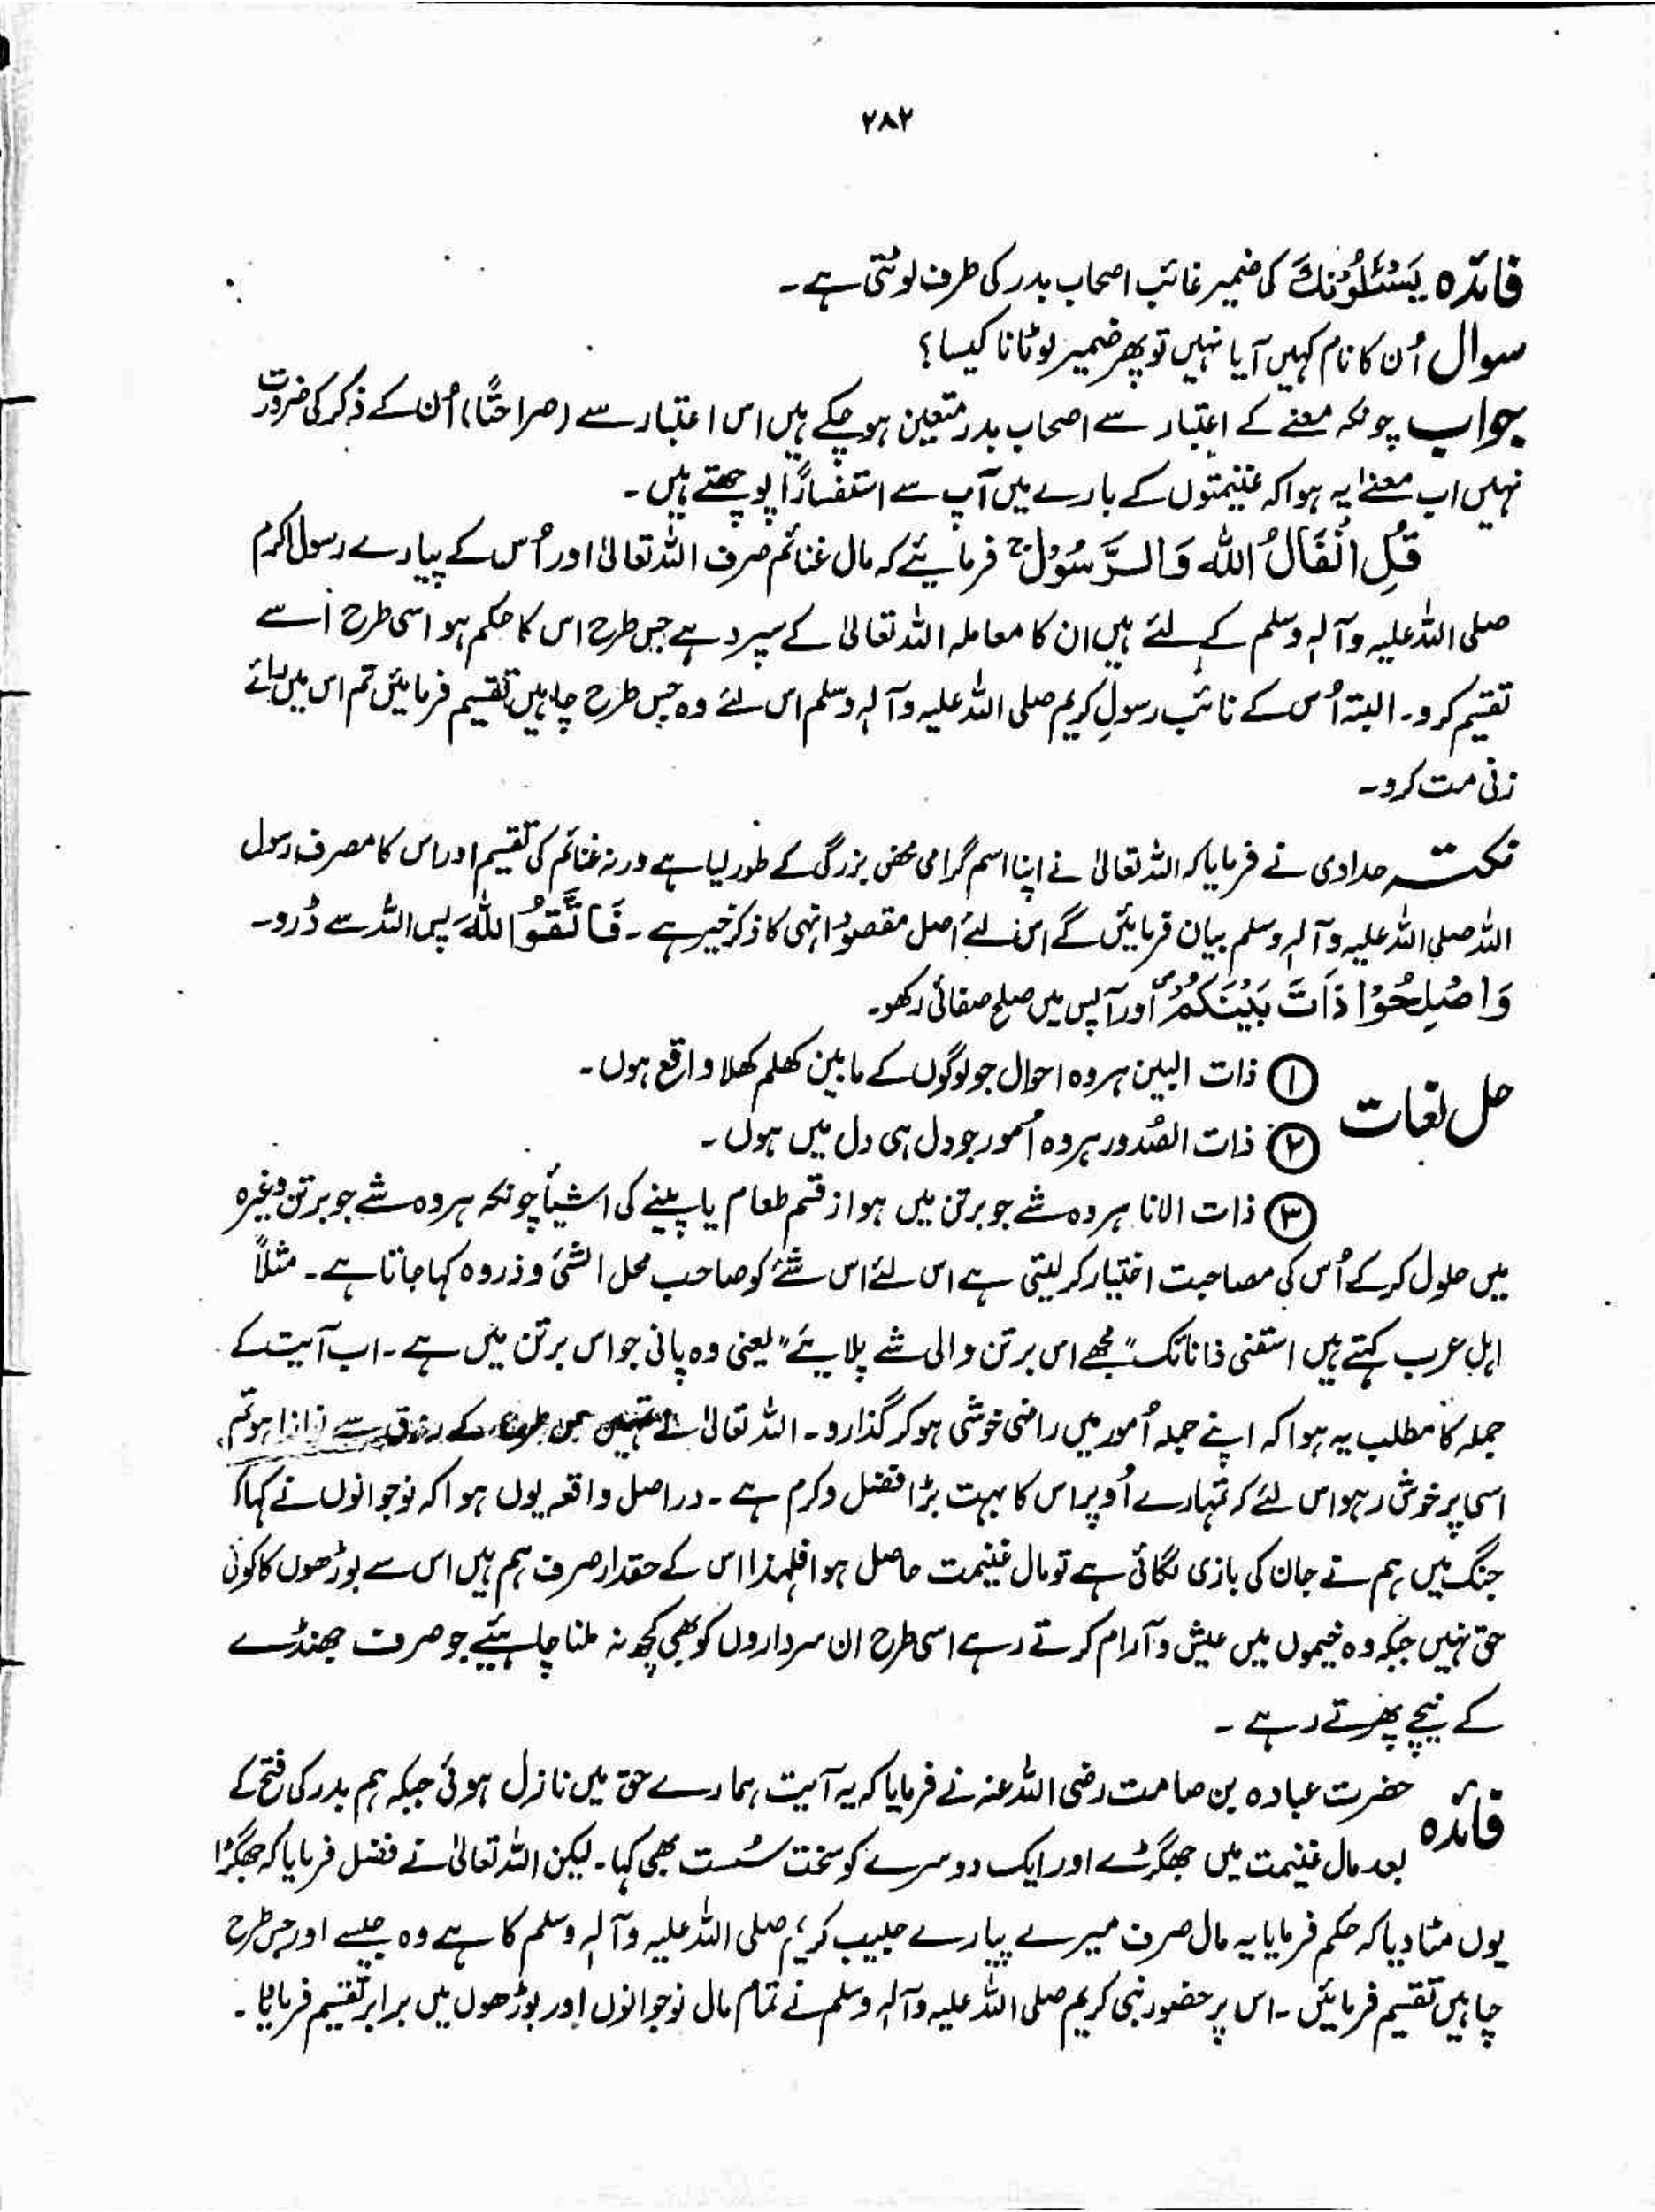 ۲۸۲
فائدہ یَسْئَلُوْنَكَ کی ضمیر غائب اصحاب بدر کی طرف لوٹتی ہے۔
سوال اُن کا نام کہیں آیا نہیں تو پھر ضمیر لوٹانا کیسا؟
جواب چونکہ معنے کے اعتبار سے اصحاب بدر متعین ہو چکے ہیں اس اعتبار سے (صراحتًا) اُن کے ذکر کی ضرورت
نہیں اب معنےٰ یہ ہوا کہ غنیمتوں کے بارے میں آپ سے استفسارًا پوچھتے ہیں۔
قُلِ انْفَالُ اللہ وَالرَّسُوْلِ ج فرمایئے کہ مال غنائم صرف اللہ تعالیٰ اور اُس کے پیارے رسول اکرم
صلی اللہ علیہ وآلہٖ وسلم کے لئے ہیں ان کا معاملہ اللہ تعالیٰ کے سپرد ہے جس طرح اس کا حکم ہو اسی طرح اُسے
تقسیم کرو۔ البتہ اُس کے نائب رسولِ کریم صلی اللہ علیہ وآلہٖ وسلم اس لئے وہ جس طرح چاہیں تقسیم فرمائیں تم اس میں رائے
زنی مت کرو۔
نکتہ حدادی نے فرمایا کہ اللہ تعالیٰ نے اپنا اسم گرامی محض بزرگی کے طور لیا ہے ورنہ غنائم کی تقسیم اور اس کا مصرف رسول
اللہ صلی اللہ علیہ وآلہٖ وسلم بیان فرمائیں گے اس لئے اصل مقصود انہی کا ذکر خیر ہے۔ فَاتَّقُوا اللہَ پس اللہ سے ڈرو۔
وَاَصْلِحُوْا ذَاتَ بَیْنَكُمْ ص اور آپس میں صلح صفائی رکھو۔
حل لغات ① ذات البین ہر وہ احوال جو لوگوں کے مابین کھلم کھلا واقع ہوں۔
② ذات الصُدور ہر وہ اُمور جو دل ہی دل میں ہوں۔
③ ذات الانا ہر وہ شے جو برتن میں ہو از قسم طعام یا پینے کی اشیأ چونکہ ہر وہ شے جو برتن وغیرہ
میں حلول کر کے اُس کی مصاحبت اختیار کر لیتی ہے اس لئے اس شئے کو صاحب محل الشئ و ذروہ کہا جاتا ہے۔ مثلاً
اہل عرب کہتے ہیں اسقنی ذا نائک "مجھے اس برتن والی شے پلایئے" یعنی وہ پانی جو اس برتن میں ہے۔ اب آیت کے
جملہ کا مطلب یہ ہوا کہ اپنے جملہ اُمور میں راضی خوشی ہو کر گذارو۔ اللہ تعالیٰ نے تمہیں جس طرح کے رزق سے نوازا ہو تم
اسی پر خوش رہو اس لئے کہ تمہارے اُوپر اس کا بہت بڑا فضل وکرم ہے۔ دراصل واقعہ یوں ہوا کہ نوجوانوں نے کہا کہ
جنگ میں ہم نے جان کی بازی لگائی ہے تو مال غنیمت حاصل ہوا فلہٰذا اس کے حقدار صرف ہم ہیں اس سے بوڑھوں کا کوئی
حق نہیں جبکہ وہ خیموں میں عیش وآرام کرتے رہے اسی طرح ان سرداروں کو بھی کچھ نہ ملنا چاہیئے جو صرف جھنڈے
کے نیچے پھرتے رہے۔
فائدہ حضرت عبادہ بن صامت رضی اللہ عنہ نے فرمایا کہ یہ آیت ہمارے حق میں نازل ہوئی جبکہ ہم بدر کی فتح کے
بعد مال غنیمت میں جھگڑے اور ایک دوسرے کو سخت سُست بھی کہا۔ لیکن اللہ تعالیٰ نے فضل فرمایا کہ جھگڑا
یوں مٹا دیا کہ حکم فرمایا یہ مال صرف میرے پیارے حبیب کریم صلی اللہ علیہ وآلہٖ وسلم کا ہے وہ جیسے اور جس طرح
چاہیں تقسیم فرمائیں۔ اس پر حضور نبی کریم صلی اللہ علیہ وآلہٖ وسلم نے تمام مال نوجوانوں اور بوڑھوں میں برابر تقسیم فرمایا۔